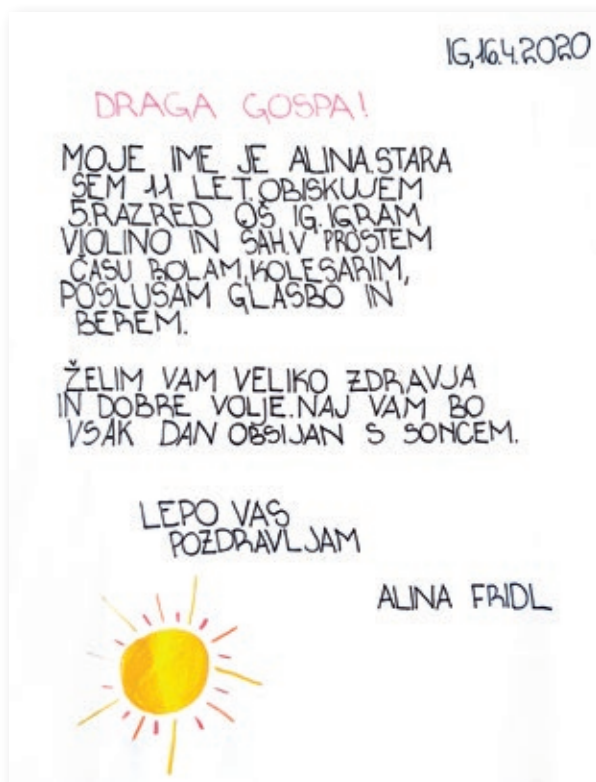 IG,16.4.2020
DRAGA GOSPA!
MOJE IME JE ALINA.STARA
SEM 11 LET.OBISKUJEM
5.RAZRED OŠ IG.IGRAM
VIOLINO IN ŠAH.V PROSTEM
ČASU ROLAM,KOLESARIM,
POSLUŠAM GLASBO IN
BEREM.
ŽELIM VAM VELIKO ZDRAVJA
IN DOBRE VOLJE.NAJ VAM BO
VSAK DAN OBSIJAN S SONCEM.
LEPO VAS
POZDRAVLJAM
ALINA FRIDL